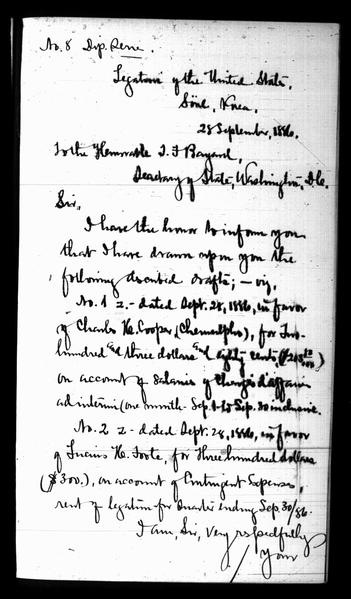 No. 8 Dip. Serie.
Legation of the United States,
Söul, Korea,
28 September, 1886.
To the Honorable T. F. Bayard,
Secretary of State, Washington, D.C.
Sir,
I have the honor to inform you
that I have drawn upon you the
following described drafts; — viz,
No. 1 z - dated Sept. 28, 1886, in favor
of Charles H. Cooper, (Chemulpho), for Two
hundred and three dollars and eighty cents,
on account of Salaries of Chargés d'affaires
ad interim (one month - Sep. 1 to Sep. 30 inclusive.
No. 2 z - dated Sept. 28, 1886, in favor
of Lucius H. Foote, for Three hundred dollars
($300.), on account of Contingent Expenses,
rent of legation for Quarter ending Sep. 30/86.
I am, Sir, very respectfully
Your